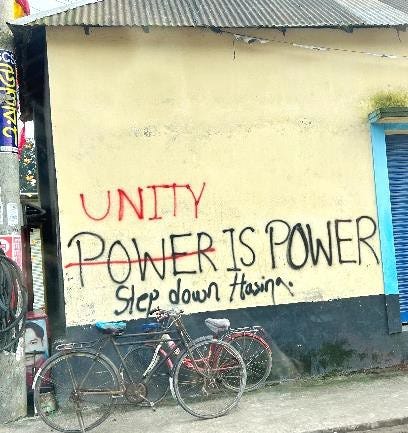 UNITY
POWER IS POWER
Step down Hasina.